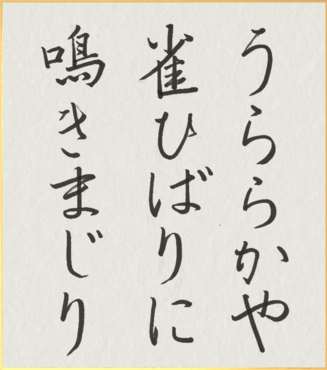 うららかや
雀ひばりに
鳴きまじり